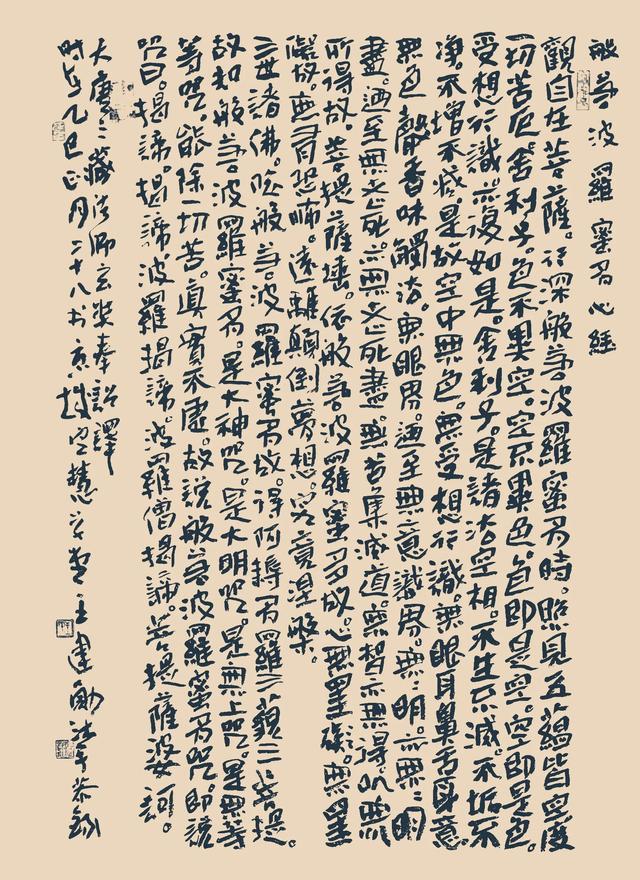 般若波羅蜜多心經
觀自在菩薩。行深般若波羅蜜多時。照見五蘊皆空度
一切苦厄。舍利子。色不異空。空不異色。色即是空。空即是色。
受想行識。亦復如是。舍利子。是諸法空相。不生不滅。不垢不
淨。不增不減。是故空中無色。無受想行識。無眼耳鼻舌身意。
無色聲香味觸法。無眼界。迺至無意識界。無無明。亦無無明
盡。迺至無老死。亦無老死盡。無苦集滅道。無智亦無得。以無
所得故。菩提薩埵。依般若波羅蜜多故。心無罣礙。無罣
礙故。無有恐怖。遠離顛倒夢想。究竟涅槃。
三世諸佛。依般若波羅蜜多故。得阿耨多羅三藐三菩提。
故知般若波羅蜜多。是大神咒。是大明咒。是無上咒。是無等
等咒。能除一切苦。真實不虛。故說般若波羅蜜多咒。即說
咒曰。揭諦。揭諦。波羅揭諦。波羅僧揭諦。菩提薩婆訶。
大唐三藏法師玄奘奉詔譯
時與乙巳正月二十八於京 空慧 堂主建勛沐手恭錄